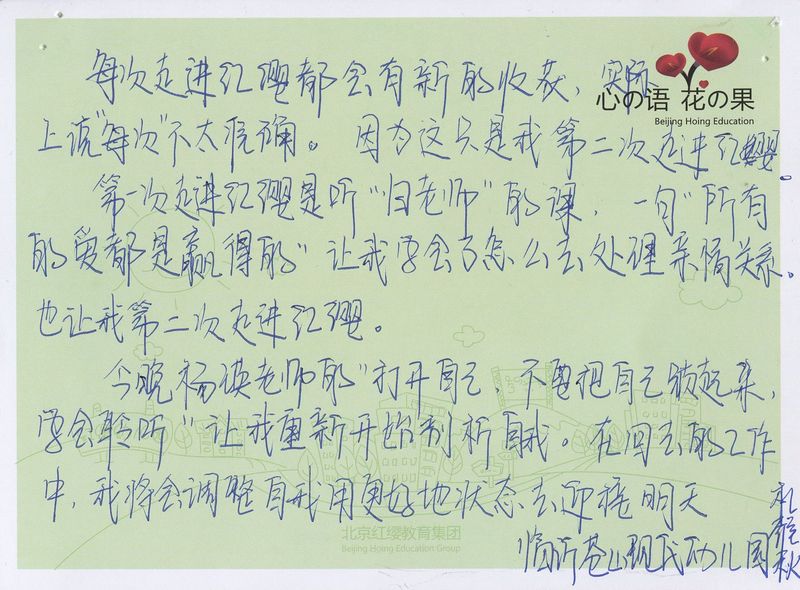 每次走进红缨都会有新的收获，实际
心の语 花の果
Beijing Hoing Education
上说"每次"不太准确。因为这只是我第二次走进红缨。
第一次走进红缨是听"白老师"的课，一句"所有
的爱都是赢得的"让我学会了怎么去处理亲情关系。
也让我第二次走进红缨。
今晚杨瑛老师的"打开自己，不要把自己锁起来，
学会聆听"让我重新开始剖析自我。在回去的工作
中，我将会调整自我用更好地状态去迎接明天
北京红缨教育集团
Beijing Hoing Education Group
临沂苍山现代幼儿园
秋